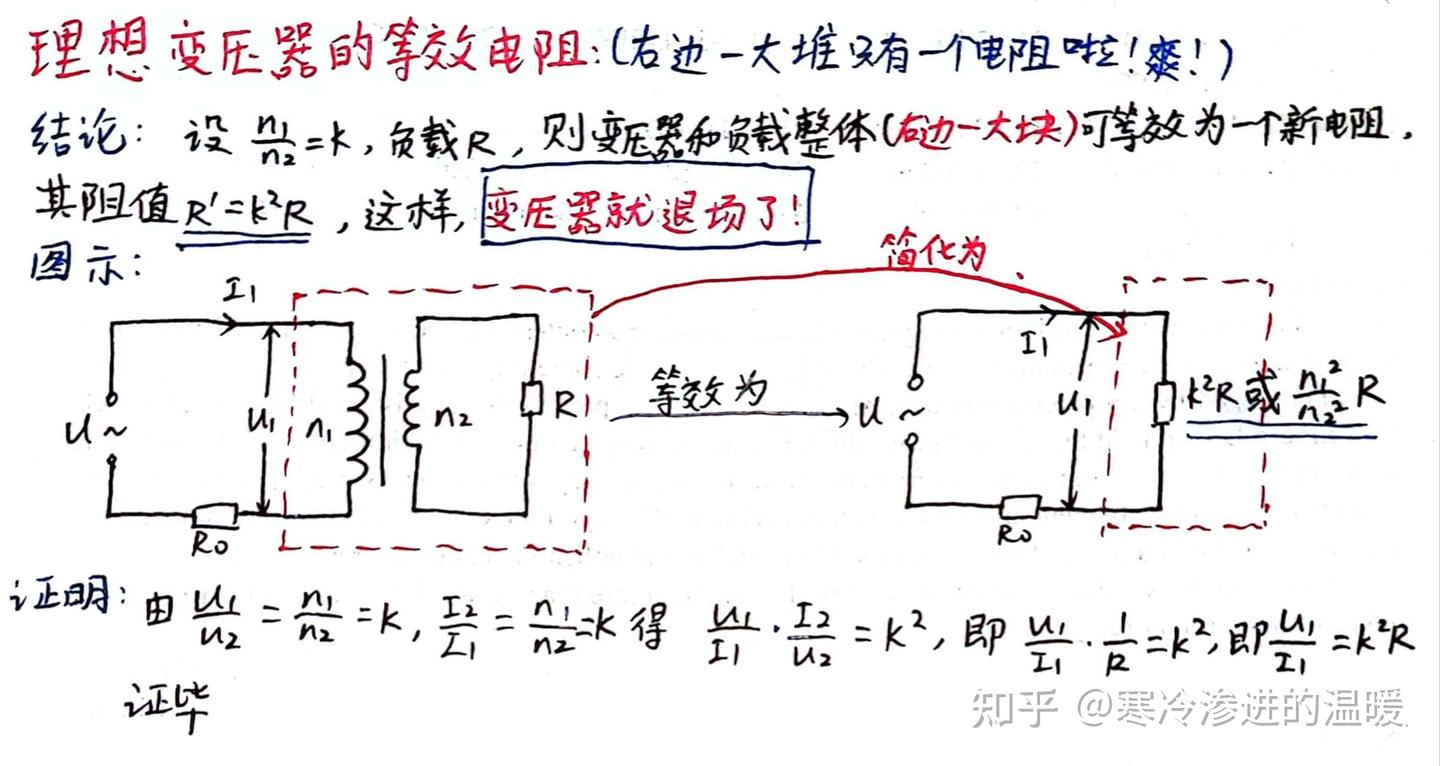 理想变压器的等效电阻:(右边一大堆只有一个电阻啦!爽!)
结论: 设 n₁/n₂=k, 负载R, 则变压器和负载整体(右边一大块)可等效为一个新电阻.
其阻值 R'=k²R , 这样, 变压器就退场了!
图示:
简化为
I₁
U ~
U₁
n₁
n₂
R
R₀
等效为
I₁
U ~
U₁
k²R 或 n₁²/n₂² R
R₀
证明: 由 U₁/U₂ = n₁/n₂ = k, I₂/I₁ = n₁/n₂ = k 得 U₁/I₁ · I₂/U₂ = k², 即 U₁/I₁ · 1/R = k², 即 U₁/I₁ = k²R
证毕
知乎 @寒冷渗进的温暖